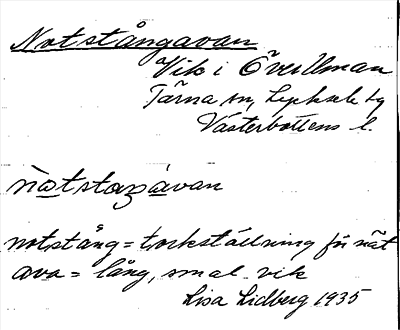 Notstångavan
Vik i Överuman
Tärna sn, Lycksele tg
Västerbottens l.
nòtstaŋàvan
notstång = torkställning för nät
ava = lång, smal vik
Lisa Lidberg 1935